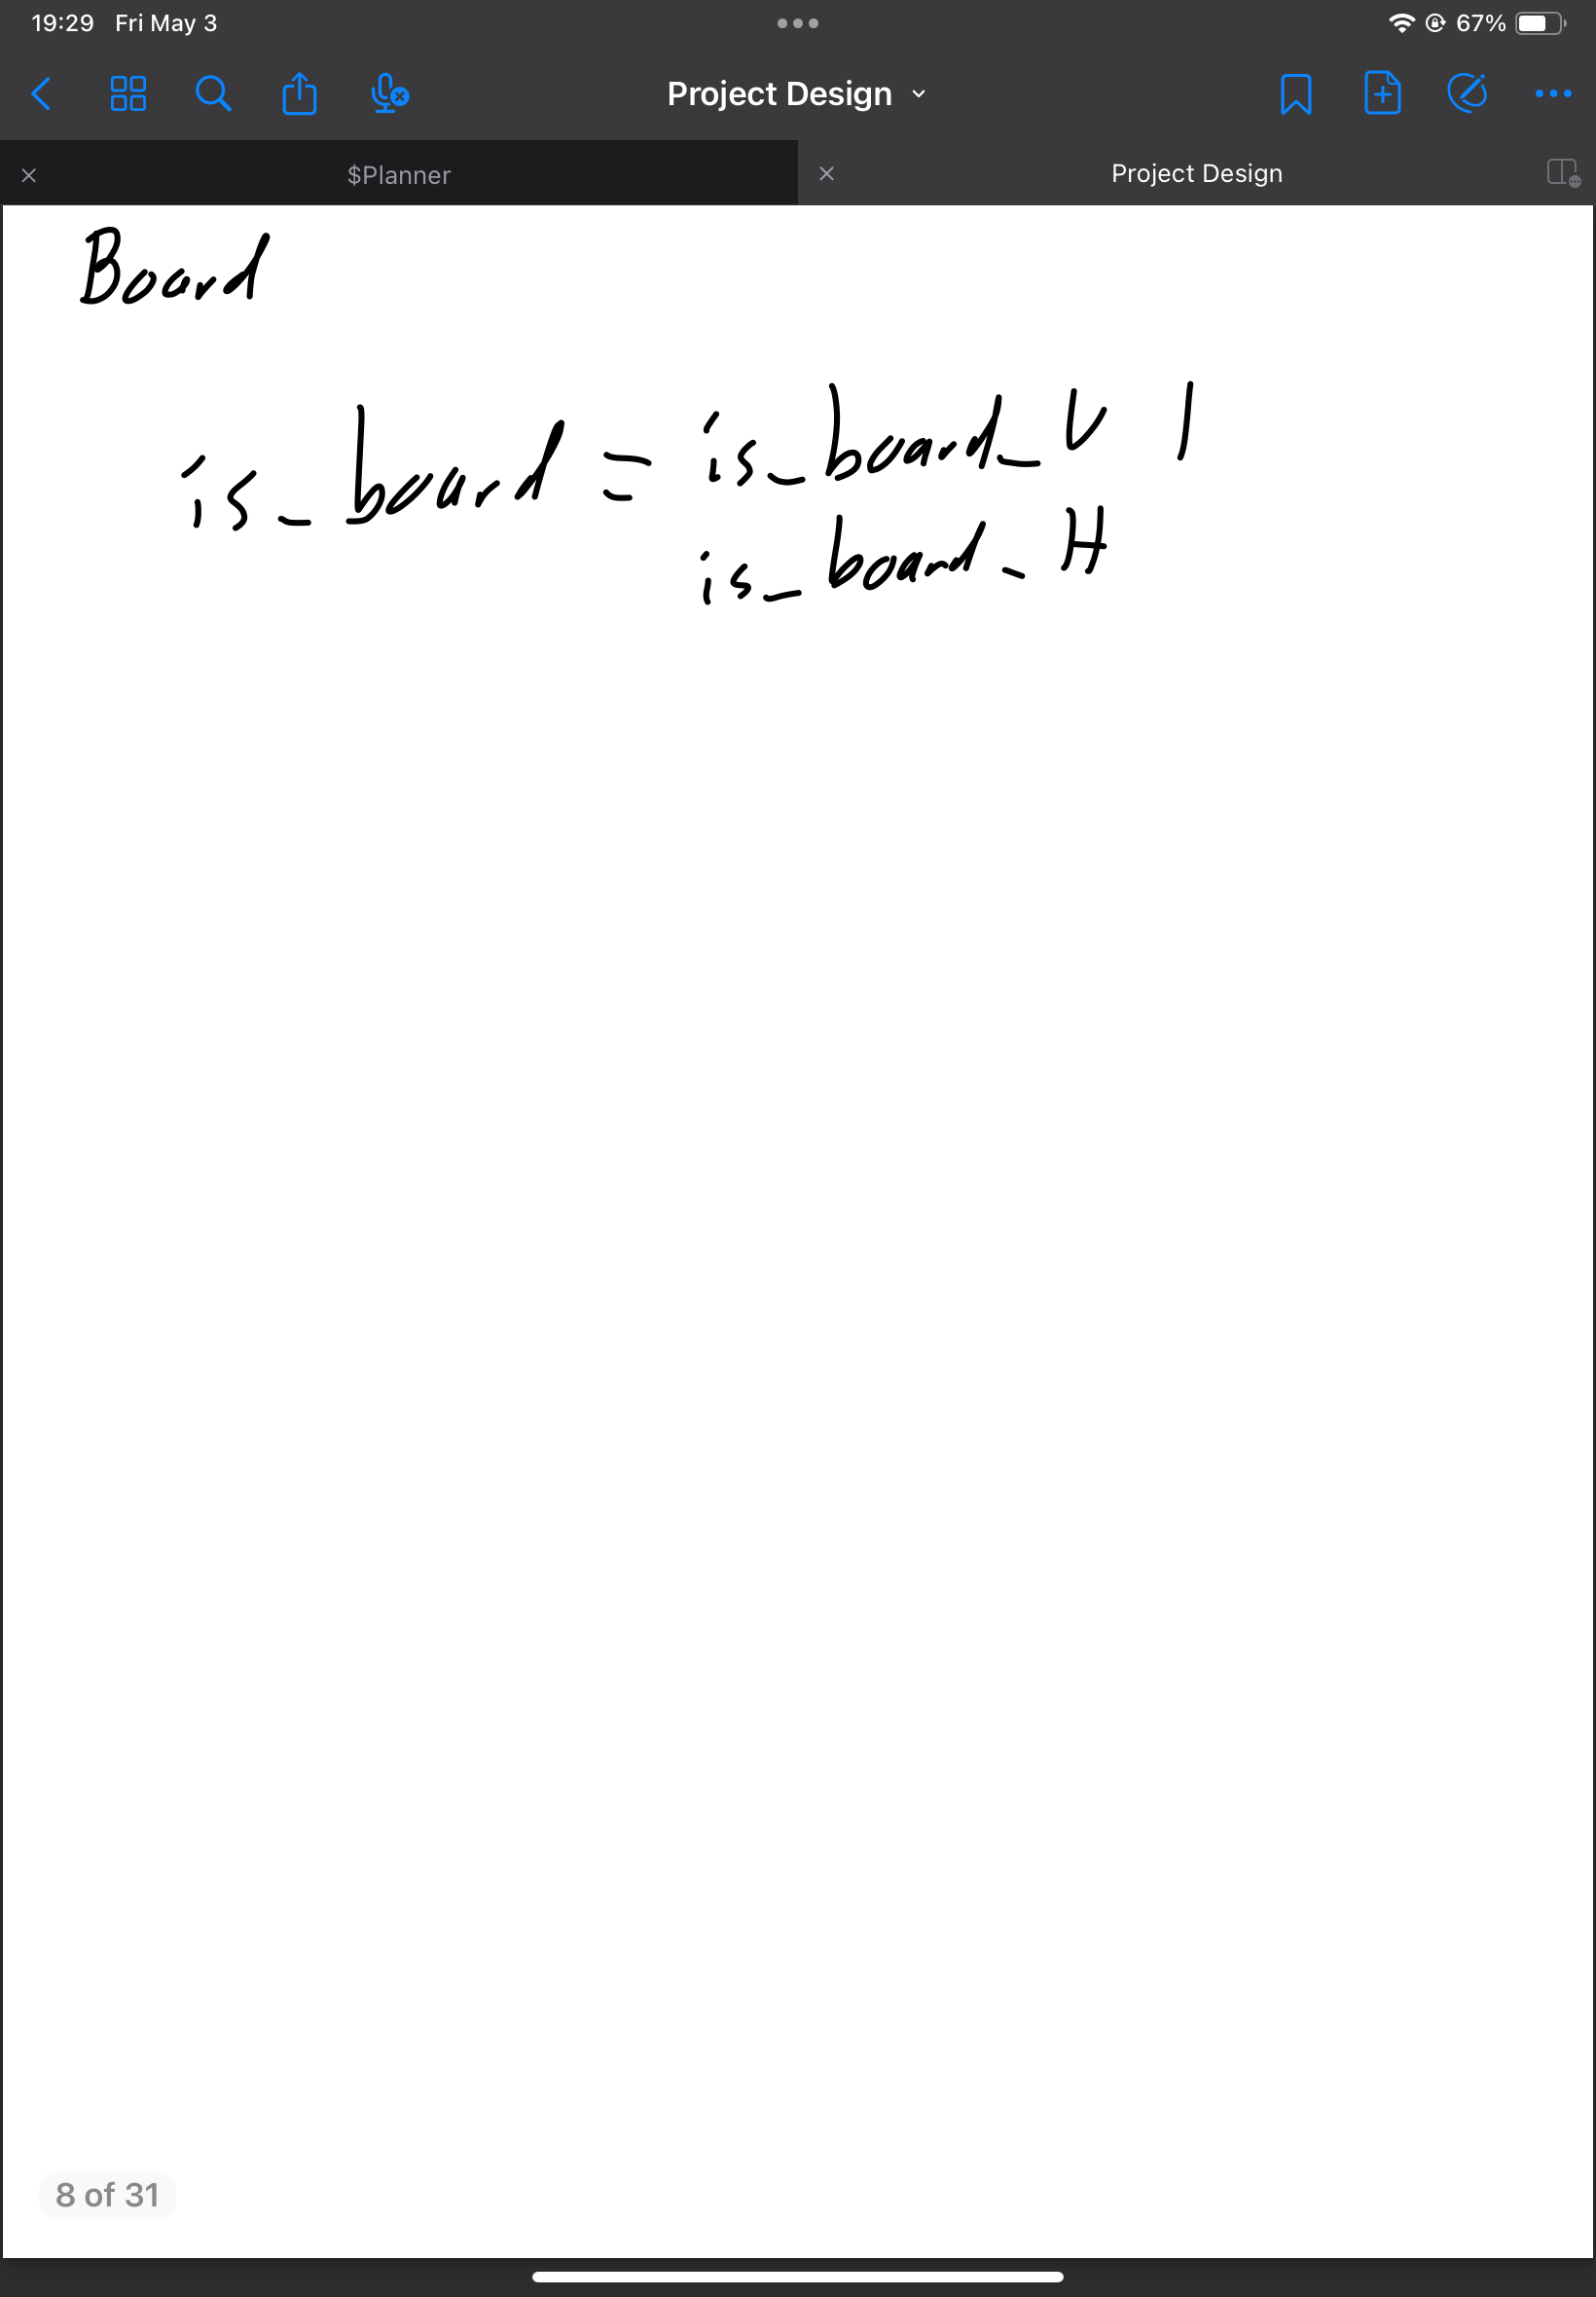 19:29 Fri May 3 67%
Project Design
$Planner Project Design
Board
is_board = is_board_V |
is_board_H
8 of 31